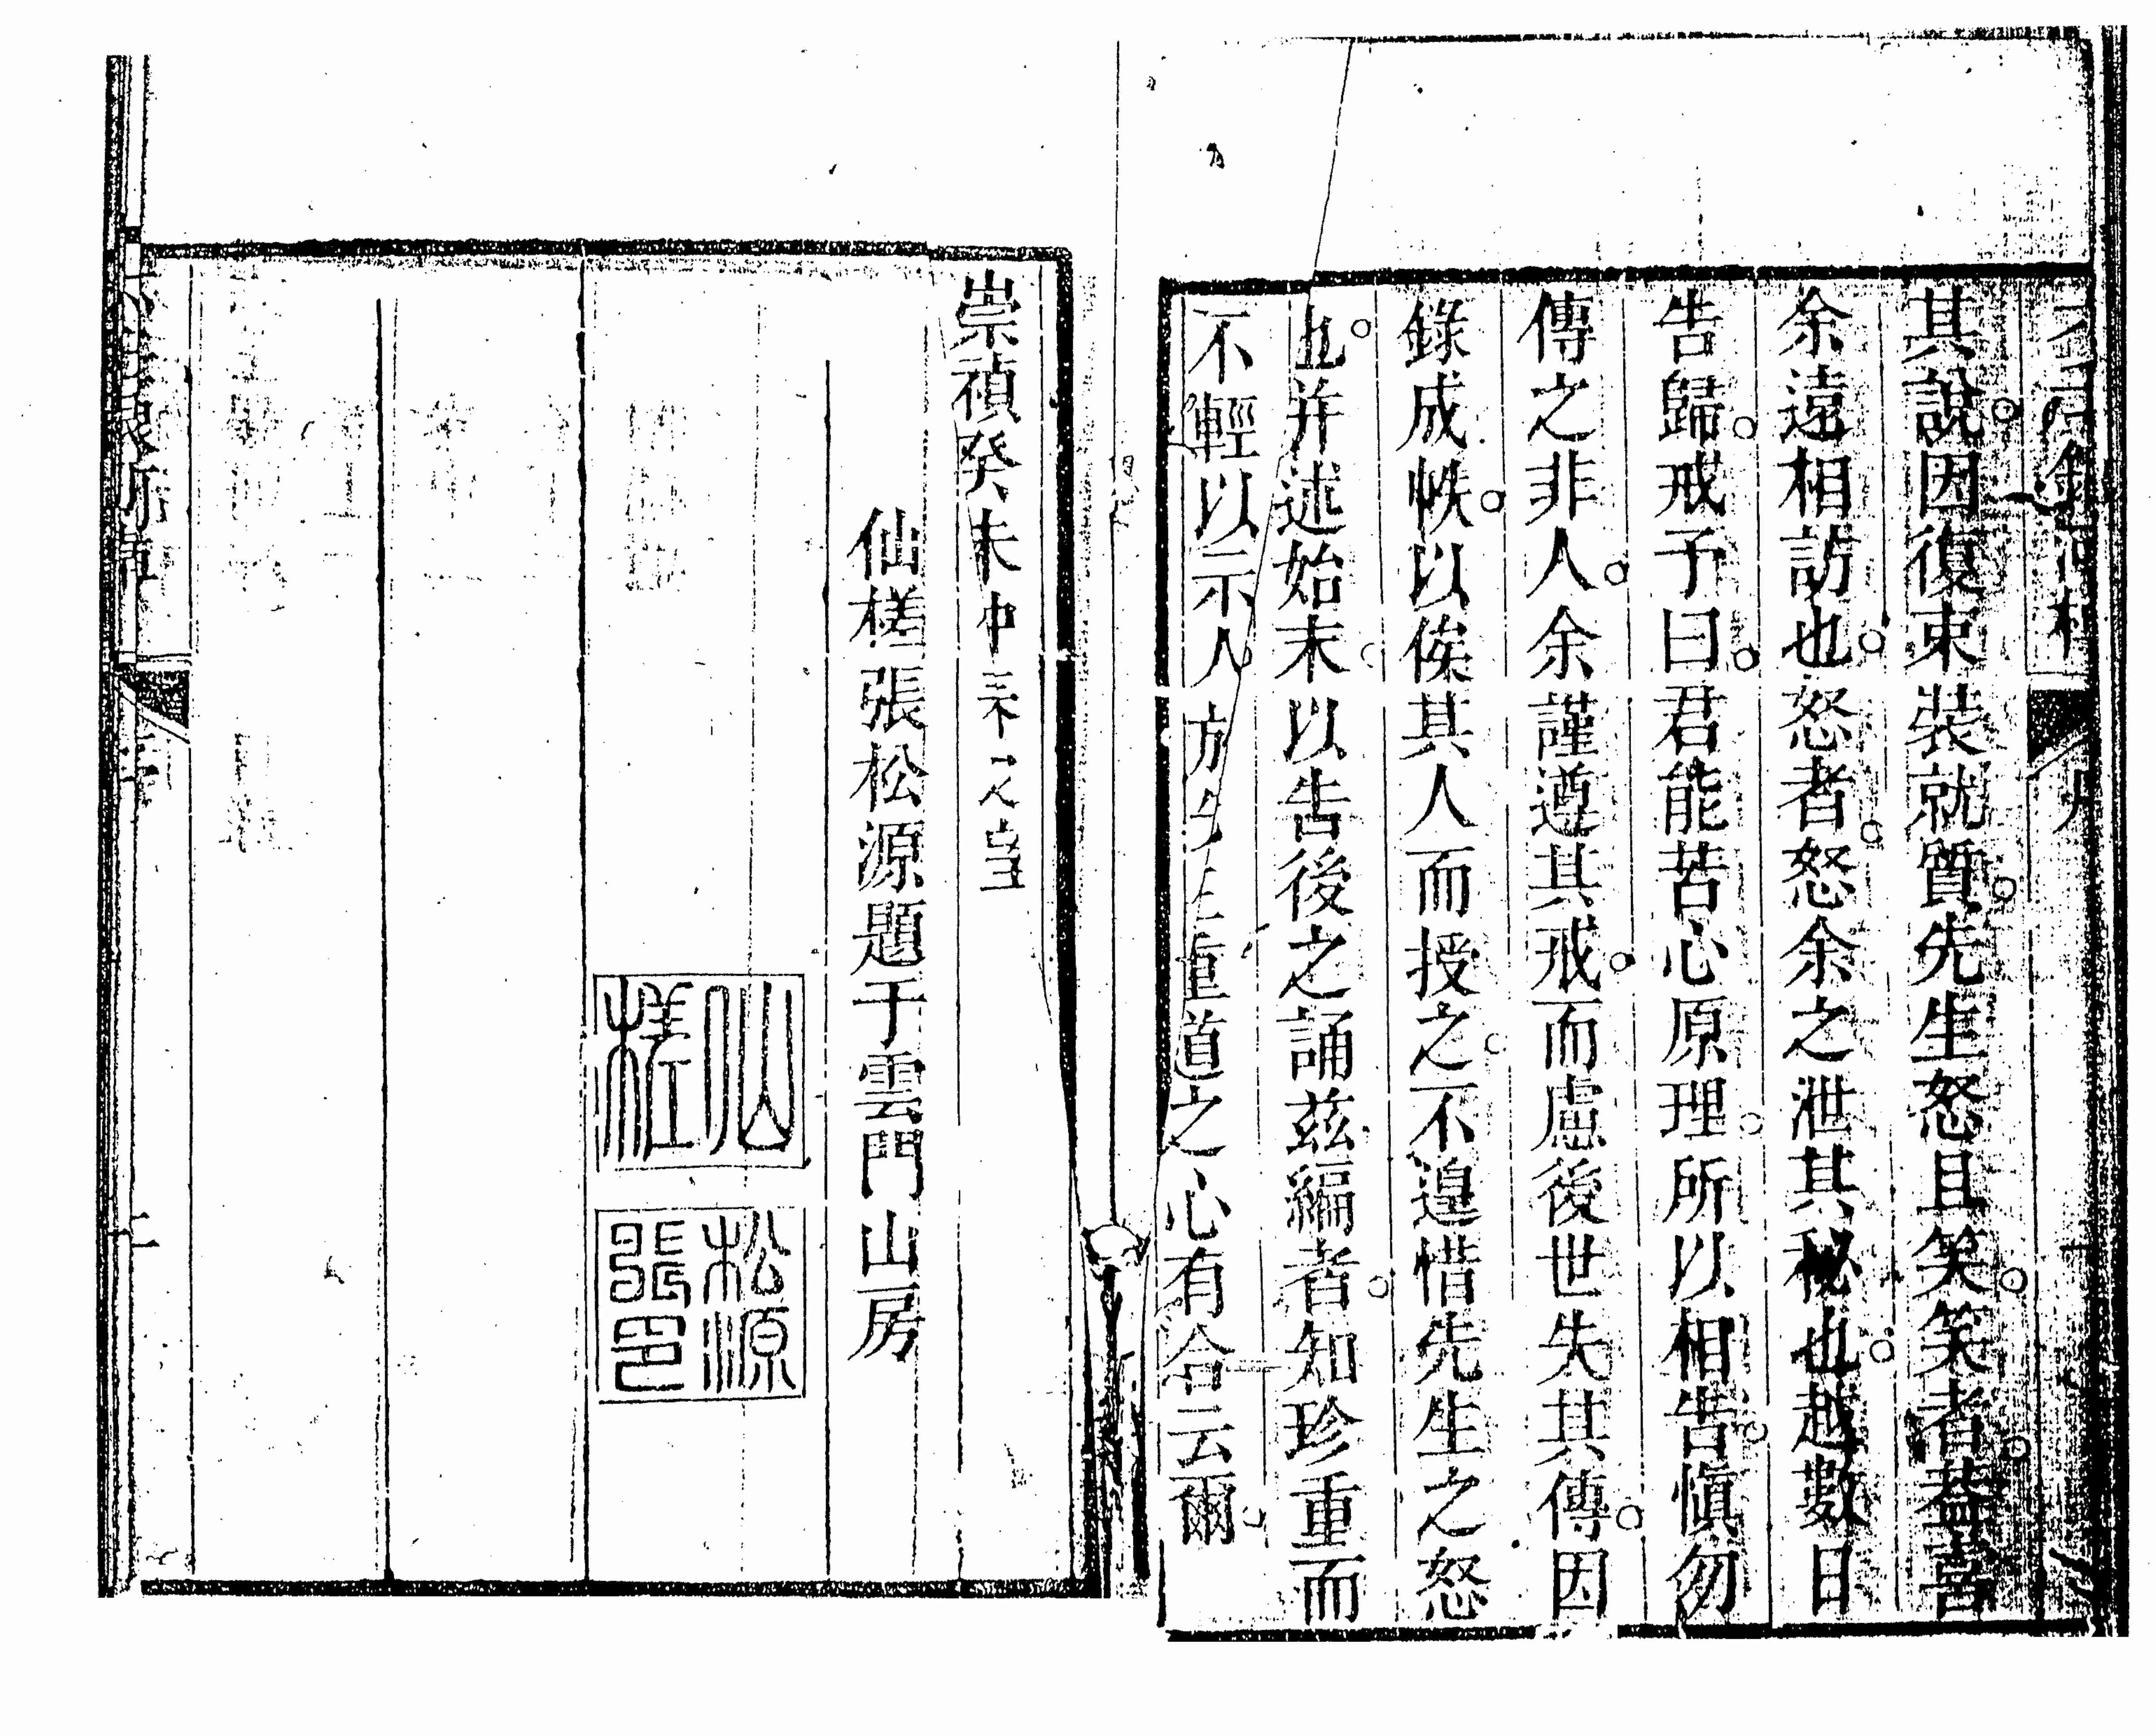 其說因復束裝就質先生怒且笑笑者葢喜
余遠相訪也怒者怒余之泄其秘也越數日
告歸戒予曰君能苦心原理所以相告慎勿
傳之非人余謹遵其戒而慮後世失其傳因
錄成帙以俟其人而授之不遑惜先生之怒
也并述始末以告後之誦茲編者知珍重而
不輕以示人方先生重道之心有合云爾
崇禎癸未中之望
仙槎張松源題于雲門山房
仙槎
松源張印
二